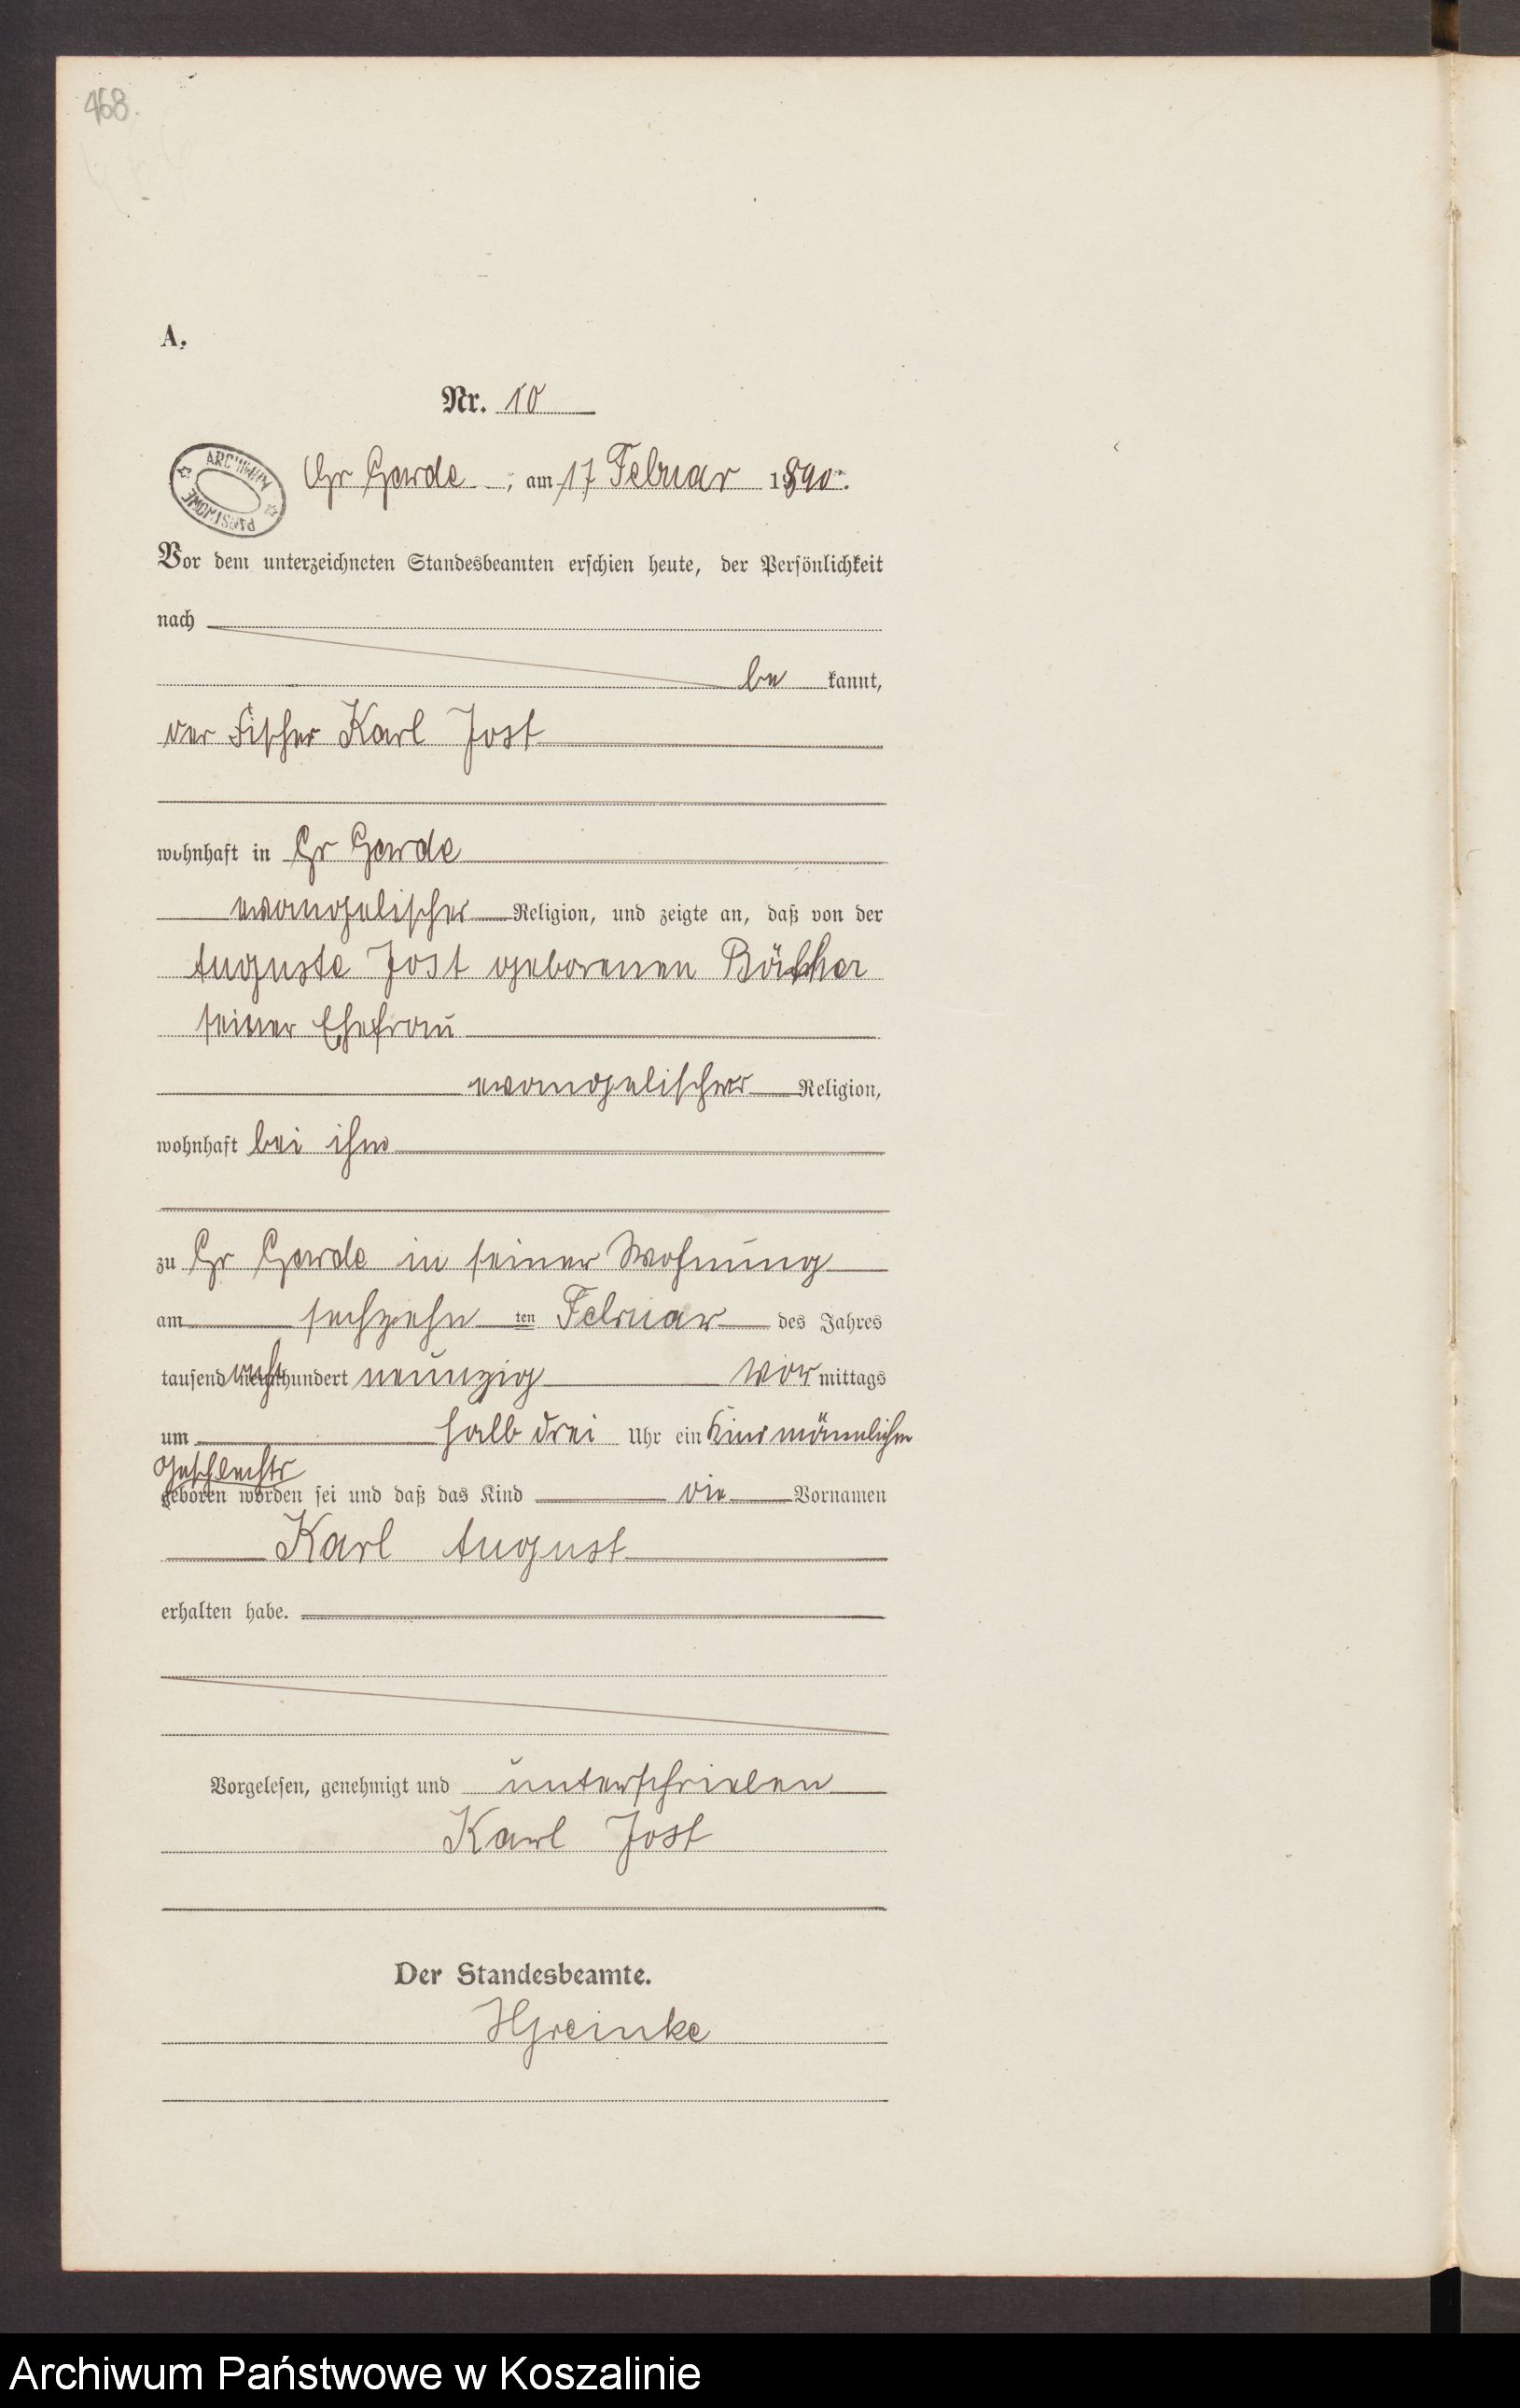 468.
A.
Nr. 10
ARCHIWUM PAŃSTWOWE
Gr Garde, am 17 Februar 1890.
Vor dem unterzeichneten Standesbeamten erschien heute, der Persönlichkeit
nach
be kannt,
der Fischer Karl Jost
wohnhaft in Gr Garde
evangelischer Religion, und zeigte an, daß von der
Auguste Jost geborenen
seiner Ehefrau
evangelischer Religion,
wohnhaft bei ihm
zu Gr Garde in seiner Wohnung
am sechzehn ten Februar des Jahres
tausend acht hundert neunzig Vor mittags
um halb drei Uhr ein Kind männlichen
Geschlechts
geboren worden sei und daß das Kind die Vornamen
Karl August
erhalten habe.
Vorgelesen, genehmigt und unterschrieben
Karl Jost
Der Standesbeamte.
HGreinke
Archiwum Państwowe w Koszalinie